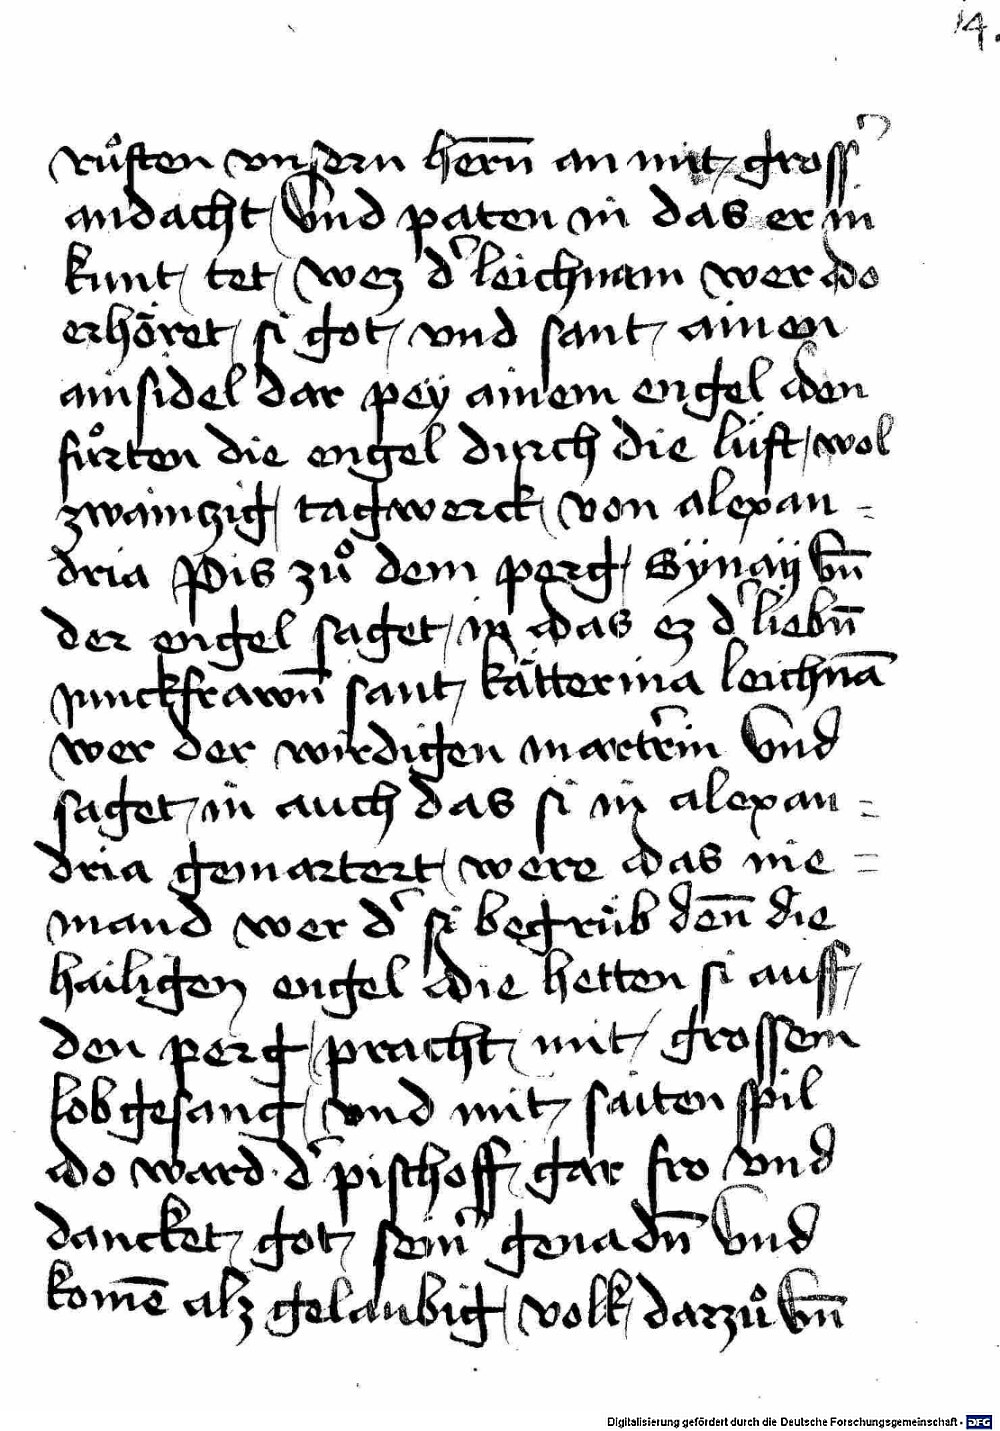 14.
růften vnsern herñ an mit gross᾽
andacht Vnd paten in das er in
kunt tet wez d᾽ leichnam wer do
erhöret si got vnd sant ainen
ainsidel dar pey ainem engel den
fůrten die engel durch die lüft wol
zwaintzig tagwerck von alexan =
dria Pis zů dem perg Sÿnaÿ Vñ
der engel saget in das ez d᾽ liebñ
junckfrawñ sant kätterina leichnā
wer der wirdigen martr᾽in Vnd
saget in auch das si in alexan =
dria gemartert were das nie =
mand wer d᾽ si begrüb deñ die
hailigen engel die hetten si auff
den perg pracht mit grossem
lobgesang vnd mit saiten spil
do ward d᾽ pischoff gar fro vnd
dancket got sein᾽ genadñ Vnd
komē alz gelaubig volk darzů Vñ
Digitalisierung gefördert durch die Deutsche Forschungsgemeinschaft - DFG